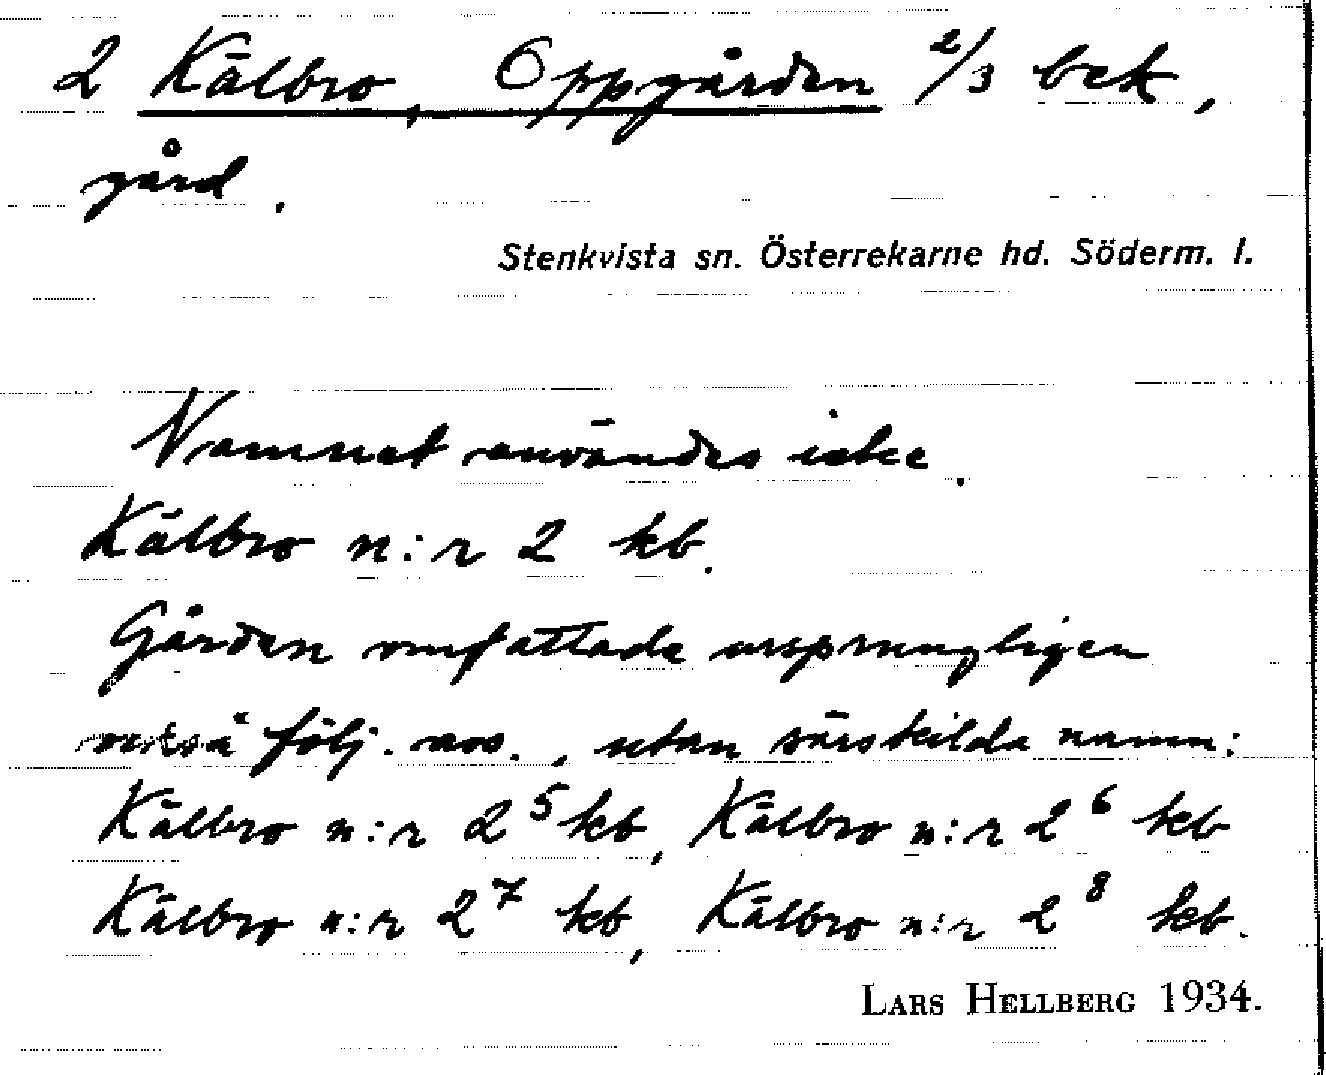 2 Kälbro, Oppgården 2/3 bek,
gård.
Stenkvista sn. Österrekarne hd. Söderm. l.
Namnet användes icke.
Kälbro n:r 2 kb.
Gården omfattade ursprungligen
också följ. avs., utan särskilda namn:
Kälbro n:r 2⁵ kb, Kälbro n:r 2⁶ kb
Kälbro n:r 2⁷ kb, Kälbro n:r 2⁸ kb.
LARS HELLBERG 1934.